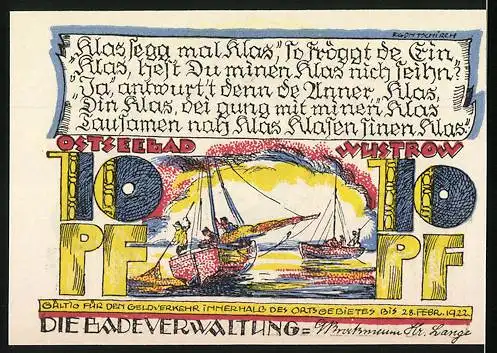 EGON TSCHIRCH
„Klas segg mal Klas“, so fröggt de Ein,
„Klas, hest Du minen Klas nich seihn?“
„Ja“, antwurt't denn de Anner, „Klas,
Din Klas, dei gung mit minen Klas
Tausamen nah Klas Klasen sinen Klas.“
OSTSEEBAD WUSTROW
10 10
PF PF
GÜLTIG FÜR DEN GELDVERKEHR INNERHALB DES ORTSGEBIETES BIS 28. FEBR. 1922
DIE BADEVERWALTUNG = Hr. Lange